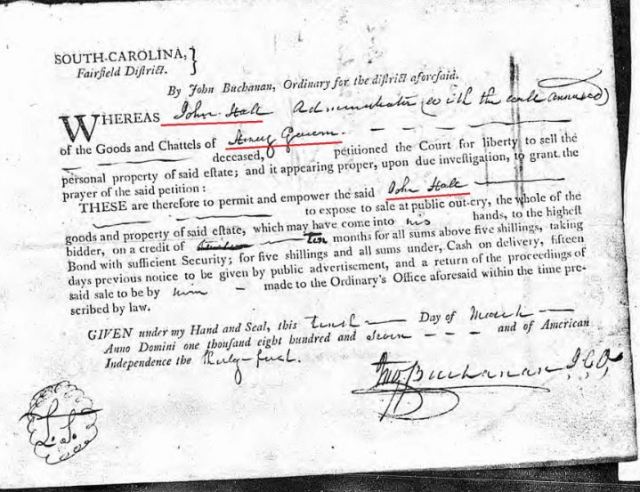 SOUTH-CAROLINA, }
Fairfield District. }
By John Buchanan, Ordinary for the district aforesaid.
WHEREAS John Hall Administrator (with the will annexed)
of the Goods and Chattels of
deceased, petitioned the Court for liberty to sell the
personal property of said estate; and it appearing proper, upon due investigation, to grant the
prayer of said petition:
THESE are therefore to permit and empower the said John Hall
to expose to sale at public out-cry, the whole of the
goods and property of said estate, which may have come into his hands, to the highest
bidder, on a credit of ten months for all sums above five shillings, taking
Bond with sufficient Security; for five shillings and all sums under, Cash on delivery, fifteen
days previous notice to be given by public advertisement, and a return of the proceedings of
said sale to be by him - made to the Ordinary's Office aforesaid within the time pre-
scribed by law.
GIVEN under my Hand and Seal, this tenth Day of March
Anno Domini one thousand eight hundred and eleven - - - and of American
Independence the
Jno. Buchanan
L.S.